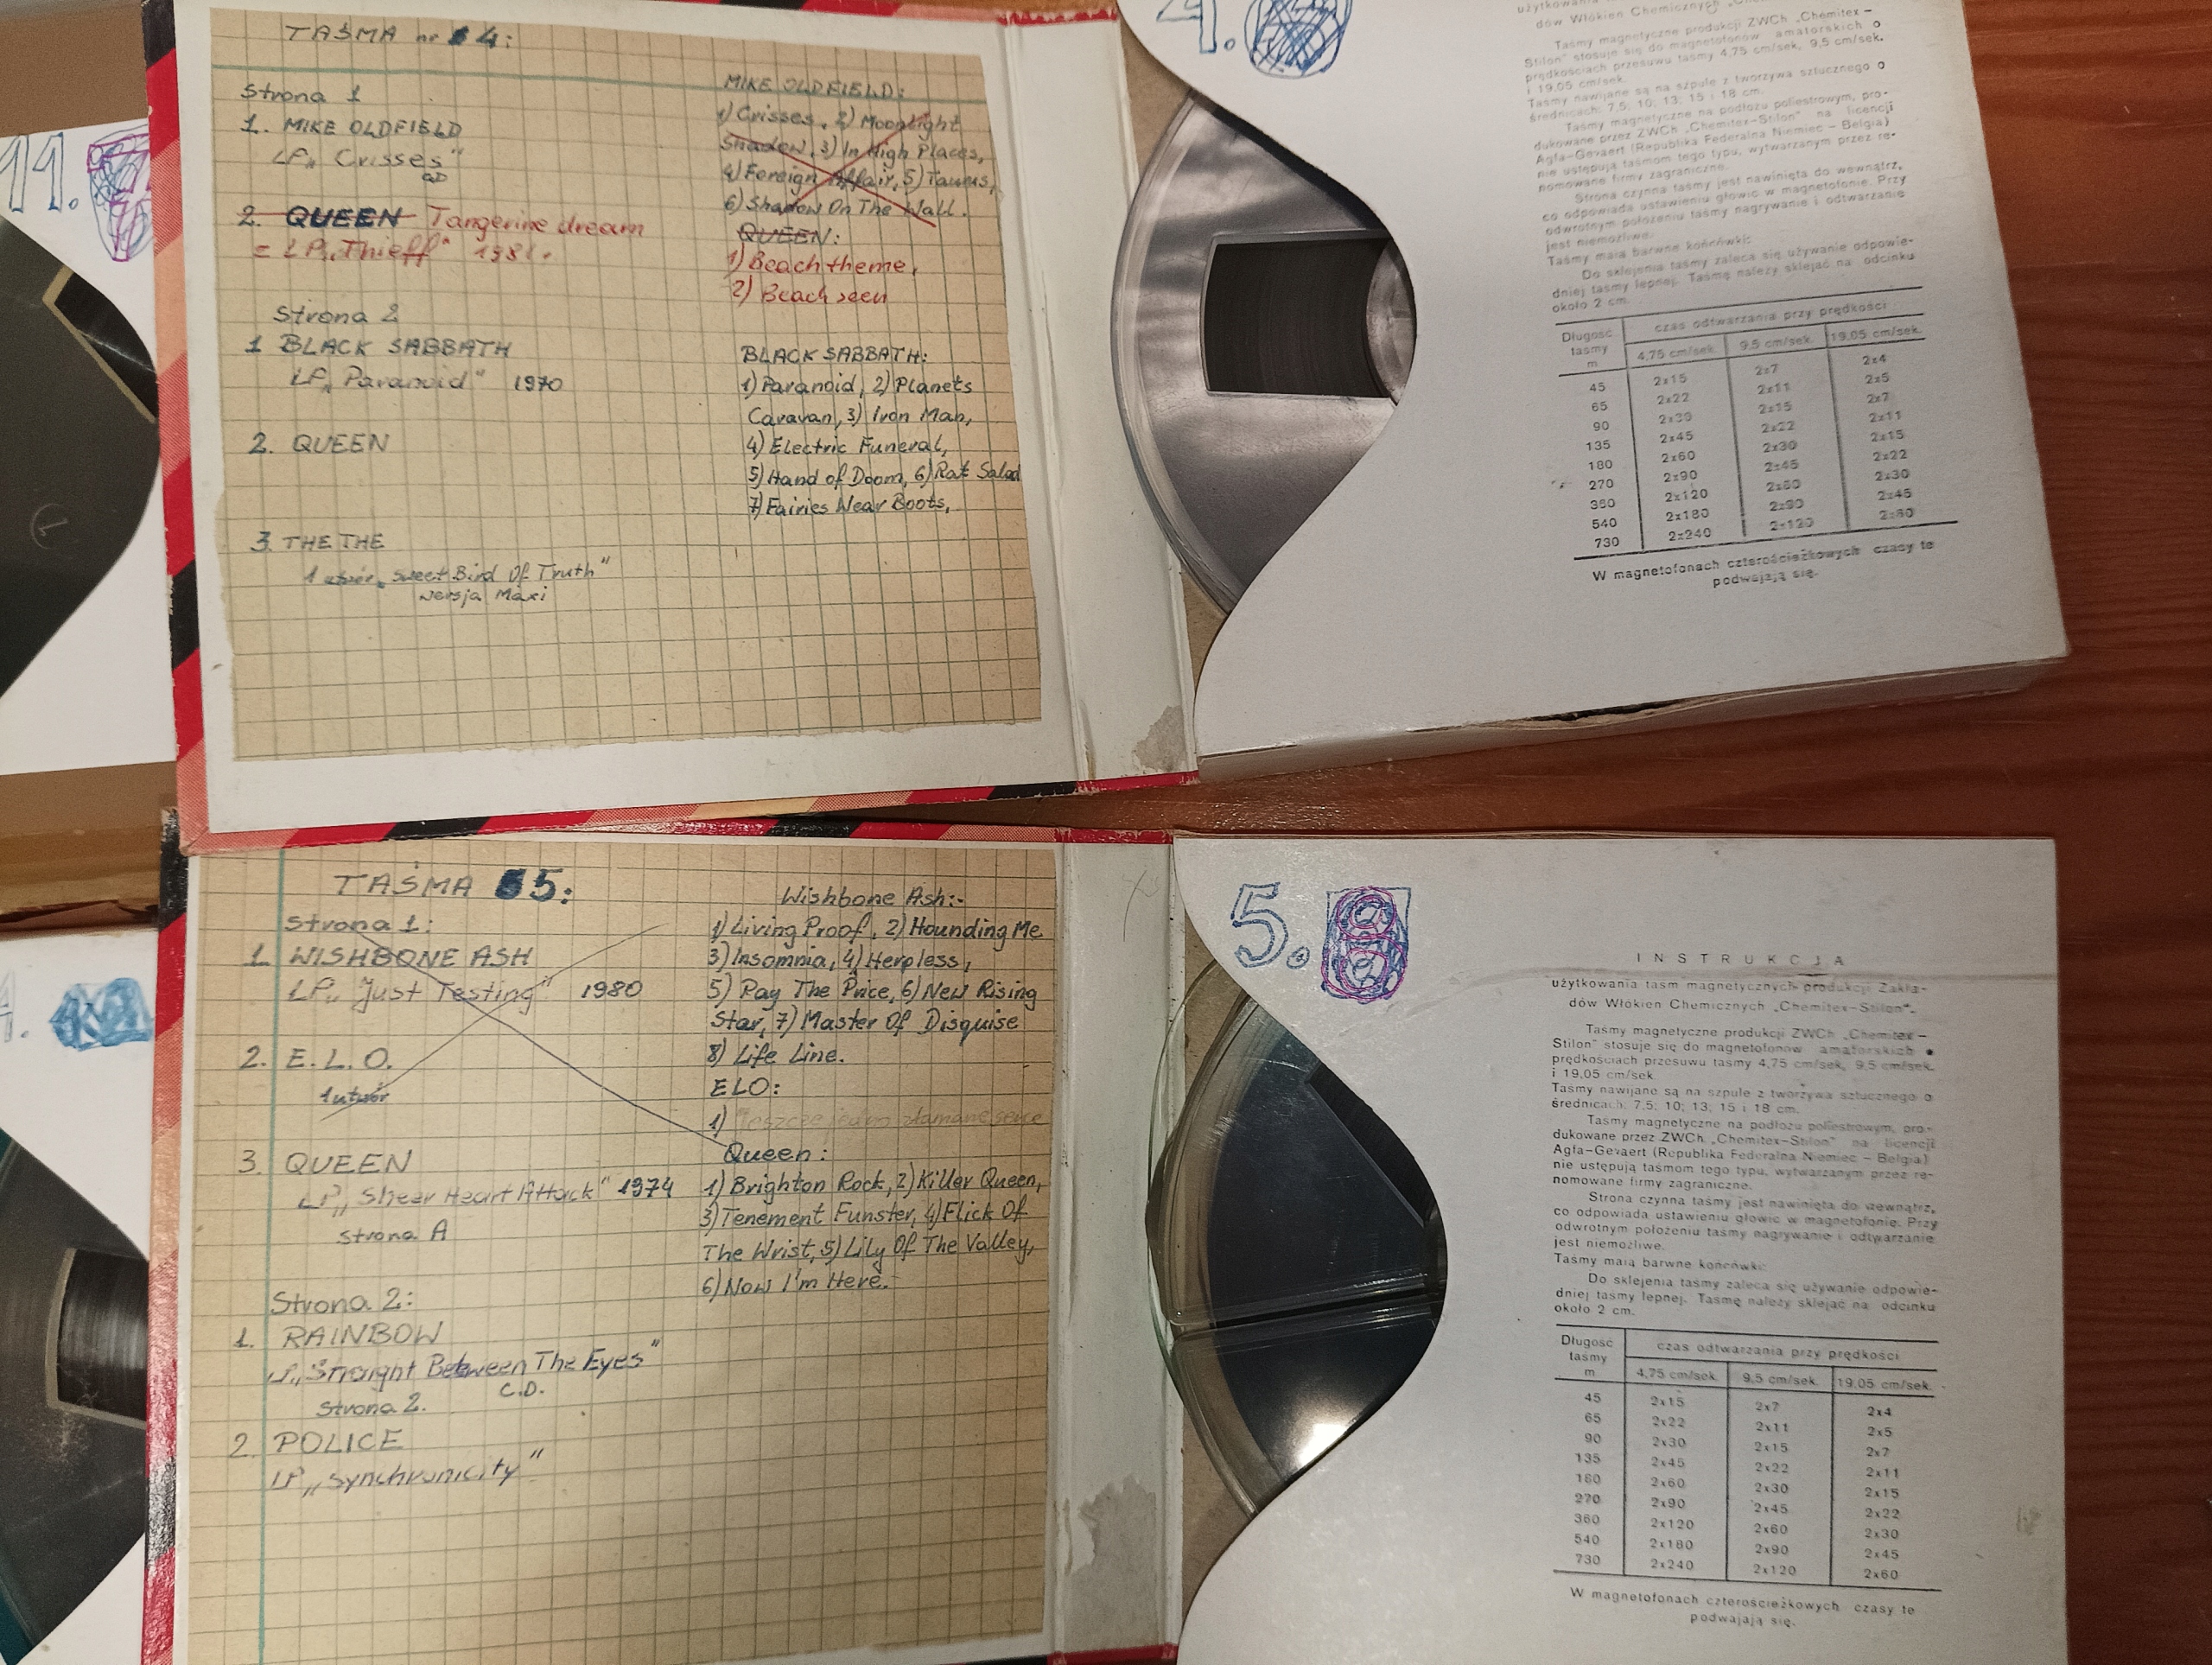 TAŚMA nr 4:
Strona 1
1. MIKE OLDFIELD
LP „Crisses"
2. QUEEN Tangerine dream
= LP „Thieff" 1981.
Strona 2
1 BLACK SABBATH
LP „Paranoid" 1970
2. QUEEN
3. THE THE
1 utwór „Sweet Bird Of Truth"
wersja Maxi
MIKE OLDFIELD:
1) Crisses, 2) Moonlight
Shadow, 3) In High Places,
4) Foreign Affair, 5) Taurus,
6) Shadow On The Wall.
QUEEN:
1) Beach theme,
2) Beach seen
BLACK SABBATH:
1) Paranoid, 2) Planets
Caravan, 3) Iron Man,
4) Electric Funeral,
5) Hand of Doom, 6) Rat Salad
7) Fairies Wear Boots,
4.
dów Włókien Chemicznych
Taśmy magnetyczne produkcji ZWCh „Chemitex –
Stilon" stosuje się do magnetofonów amatorskich o
prędkościach przesuwu taśmy 4,75 cm/sek, 9,5 cm/sek.
i 19,05 cm/sek.
Taśmy nawijane są na szpule z tworzywa sztucznego o
średnicach: 7,5; 10; 13; 15 i 18 cm.
Taśmy magnetyczne na podłożu poliestrowym, pro-
dukowane przez ZWCh „Chemitex-Stilon" na licencji
Agfa-Gevaert (Republika Federalna Niemiec – Belgia)
nie ustępują taśmom tego typu, wytwarzanym przez re-
nomowane firmy zagraniczne.
Strona czynna taśmy jest nawinięta do wewnątrz,
co odpowiada ustawieniu głowic w magnetofonie. Przy
odwrotnym położeniu taśmy nagrywanie i odtwarzanie
jest niemożliwe.
Taśmy mają barwne końcówki:
Do sklejenia taśmy zaleca się używanie odpowie-
dniej taśmy lepnej. Taśmę należy sklejać na odcinku
około 2 cm.
Długość taśmy m
czas odtwarzania przy prędkości
4,75 cm/sek. 9,5 cm/sek. 19,05 cm/sek.
45 2x15 2x7 2x4
65 2x22 2x11 2x5
90 2x30 2x15 2x7
135 2x45 2x22 2x11
180 2x60 2x30 2x15
270 2x90 2x45 2x22
360 2x120 2x60 2x30
540 2x180 2x90 2x45
730 2x240 2x120 2x60
W magnetofonach czterościeżkowych czasy te
podwajają się.
11.
TAŚMA 5:
Strona 1:
1. WISHBONE ASH
LP „Just Testing" 1980
2. E.L.O.
1 utwór
3. QUEEN
LP „Sheer Heart Attack" 1974
strona A
Strona 2:
1. RAINBOW
LP „Straight Between The Eyes"
C.D.
strona 2.
2. POLICE
LP „Synchronicity"
Wishbone Ash:-
1) Living Proof, 2) Hounding Me
3) Insomnia, 4) Herpless,
5) Pay The Price, 6) New Rising
Star, 7) Master Of Disquise
8) Life Line.
ELO:
1) "Jeszcze jedno złamane serce
Queen:
1) Brighton Rock, 2) Killer Queen,
3) Tenement Funster, 4) Flick Of
The Wrist, 5) Lily Of The Valley,
6) Now I'm Here.
5.
INSTRUKCJA
użytkowania taśm magnetycznych produkcji Zakła-
dów Włókien Chemicznych „Chemitex-Stilon".
Taśmy magnetyczne produkcji ZWCh „Chemitex –
Stilon" stosuje się do magnetofonów amatorskich o
prędkościach przesuwu taśmy 4,75 cm/sek, 9,5 cm/sek.
i 19,05 cm/sek.
Taśmy nawijane są na szpule z tworzywa sztucznego o
średnicach: 7,5; 10; 13; 15 i 18 cm.
Taśmy magnetyczne na podłożu poliestrowym, pro-
dukowane przez ZWCh „Chemitex-Stilon" na licencji
Agfa-Gevaert (Republika Federalna Niemiec – Belgia)
nie ustępują taśmom tego typu, wytwarzanym przez re-
nomowane firmy zagraniczne.
Strona czynna taśmy jest nawinięta do wewnątrz,
co odpowiada ustawieniu głowic w magnetofonie. Przy
odwrotnym położeniu taśmy nagrywanie i odtwarzanie
jest niemożliwe.
Taśmy mają barwne końcówki:
Do sklejenia taśmy zaleca się używanie odpowie-
dniej taśmy lepnej. Taśmę należy sklejać na odcinku
około 2 cm.
Długość taśmy m
czas odtwarzania przy prędkości
4,75 cm/sek. 9,5 cm/sek. 19,05 cm/sek.
45 2x15 2x7 2x4
65 2x22 2x11 2x5
90 2x30 2x15 2x7
135 2x45 2x22 2x11
180 2x60 2x30 2x15
270 2x90 2x45 2x22
360 2x120 2x60 2x30
540 2x180 2x90 2x45
730 2x240 2x120 2x60
W magnetofonach czterościeżkowych czasy te
podwajają się.